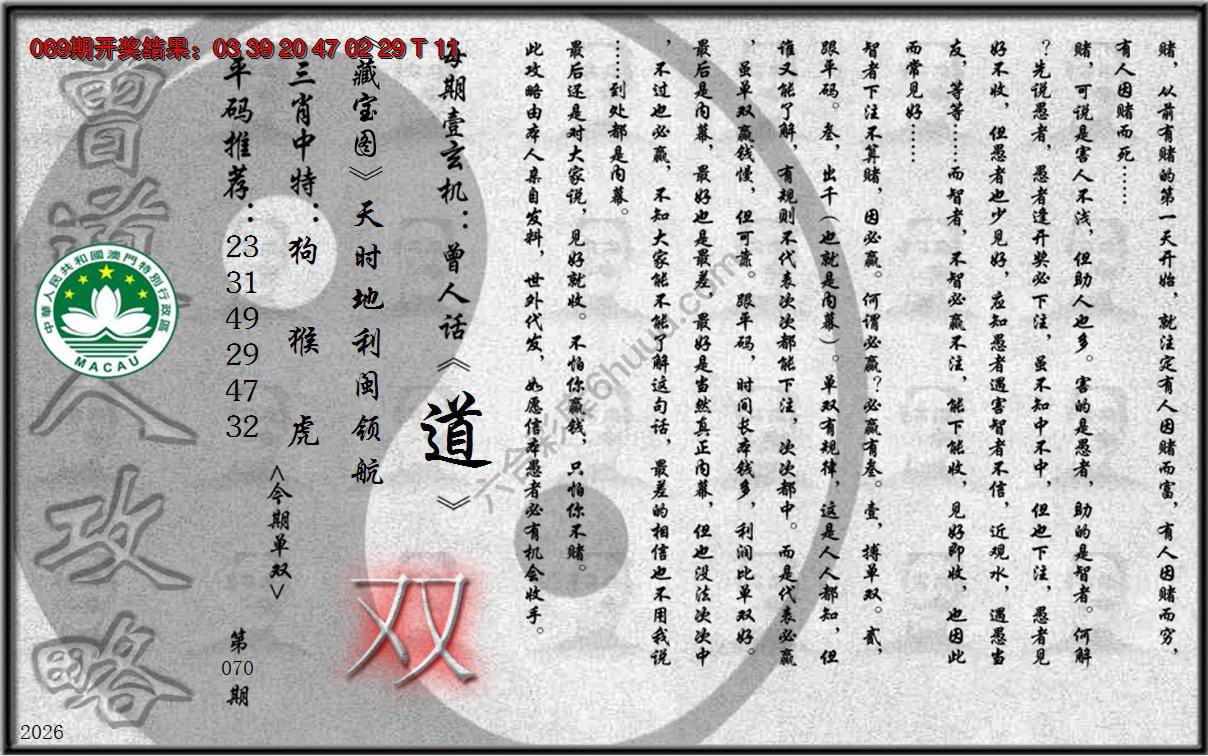 069期开奖结果：03 39 20 47 02 29 T 11
赌，从前有赌的第一天开始，就注定有人因赌而富，有人因赌而穷，
有人因赌而死……
赌，可说是害人不浅，但助人也多。害的是愚者，助的是智者。何解
？先说愚者，愚者逢开奖必下注，虽不知中不中，但也下注，愚者见
好不收，但愚者也少见好，应知愚者遇害智者不信，近观水，遇愚当
友，等等……而智者，不智必赢不注，能下能收，见好即收，也因此
而常见好……
智者下注不算赌，因必赢。何谓必赢？必赢有叁。壹，搏单双。贰，
跟平码。叁，出千（也就是内幕）。单双有规律，这是人人都知，但
谁又能了解，有规则不代表次次都能下注，次次都中。而是代表必赢
，虽单双赢钱慢，但可靠。跟平码，时间长本钱多，利润比单双好。
最后是内幕，最好也是最差，最好是当然真正内幕，但也没法次次中
，不过也必赢，不知大家能不能了解这句话，最差的相信也不用我说
……到处都是内幕。
最后还是对大家说，见好就收。不怕你赢钱，只怕你不赌。
此攻略由本人亲自发料，世外代发，如愿信本愚者必有机会收手。
每期壹玄机：曾人话《道》
《藏宝图》天时地利闽领航
三肖中特：狗 猴 虎
平码推荐：23 31 49 29 47 32
<今期单双>
双
第070期
曾道人攻略
中華人民共和國澳門特別行政區
MACAU
2026
六合彩库6huuu.com